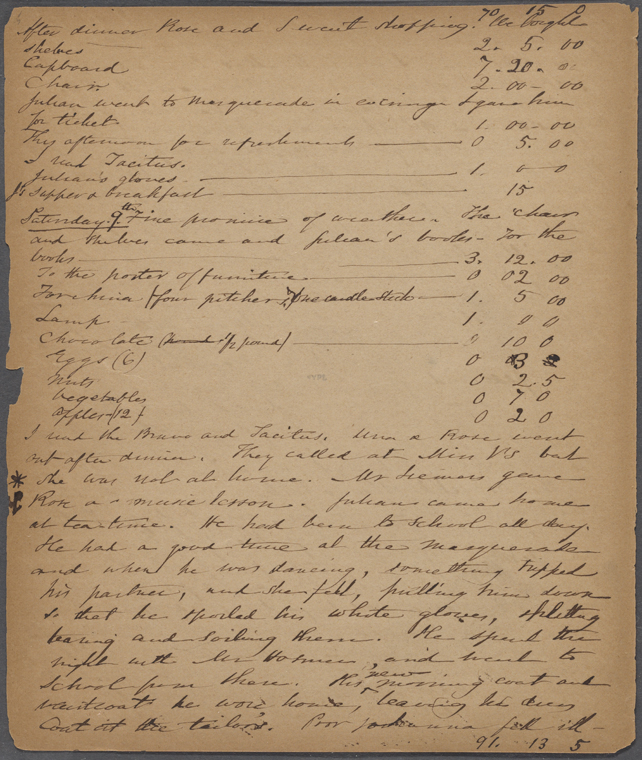 70 15 0
After dinner Rose and I went shopping. We bought
shelves 2. 5. 00
Cupboard 7. 20. 0
Chair 2. 00 - 00
Julian went to masquerade in evening I gave him
for ticket. 1. 00 - 00
This afternoon for refreshments 0 5. 00
I read Tacitus.
Julian's gloves 1. 0 0
J's supper & breakfast 15
Saturday. 9th Fine promise of weather. The chair
and shelves came and Julian's books - For the
books 3. 12. 00
To the porter of furniture 0 02 00
For china (four pitchers) one candlestick 1. 5 00
Lamp 1. 0 0
Chocolate (½ pound) 0 10 0
Eggs (6) 0 3
Nuts 0 2. 5
Vegetables 0 7 0
Apples (12) 0 2 0
I read the Bravo and Tacitus. Una & Rose went
out after dinner. They called at Miss V's but
she was not at home. Mr gave
Rose a music lesson. Julian came home
at tea time. He had been to school all day.
He had a good time at the masquerade
and when he was dancing, something tripped
his partner, and she fell, pulling him down
so that he spoiled his white gloves, splitting
tearing and soiling them. He spent the
night with Mr and went to
school from there. His new morning coat and
vestcoat he wore home, leaving his dress
coat at the tailor's. Poor fell ill -
91. 13 5